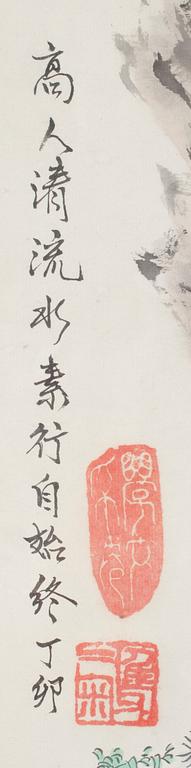 高人清流水素行自始終丁卯